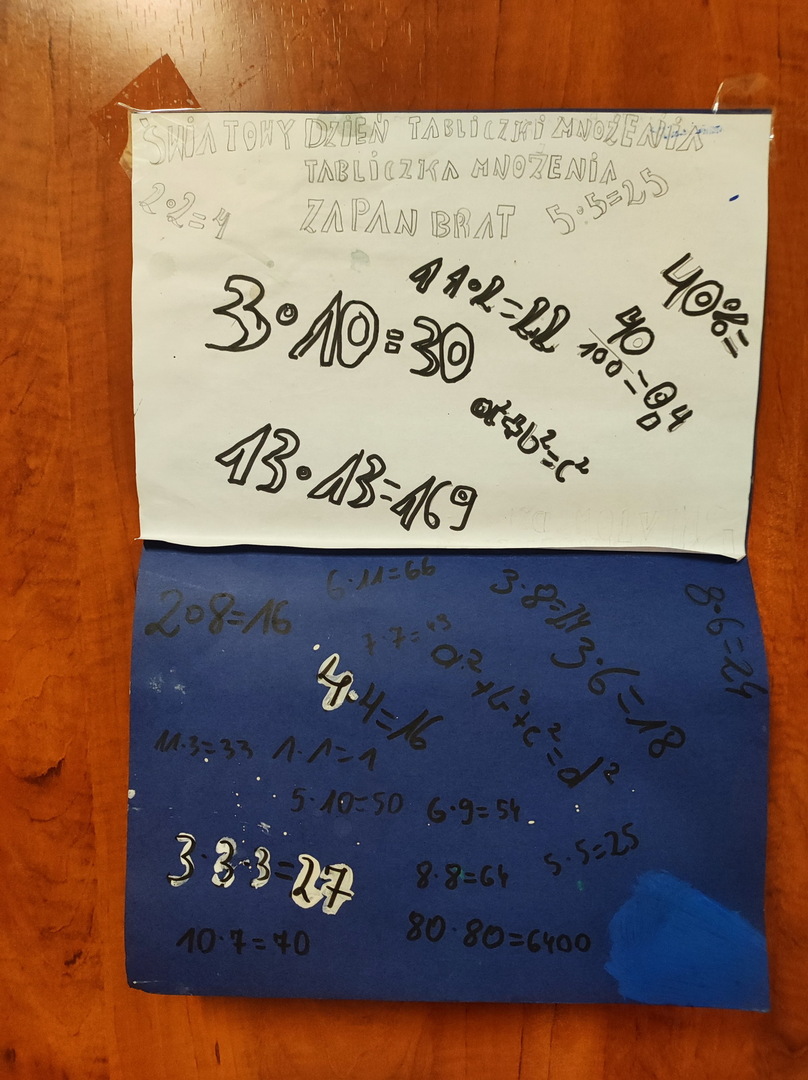 ŚWIATOWY DZIEŃ TABLICZKI MNOŻENIA
TABLICZKA MNOŻENIA
ZAPAN BRAT
2·2=4
5·5=25
11·2=22
40%=
40/100=0,4
3·10=30
a²+b²=c²
13·13=169
6·11=66
3·8=24
8·6=24
2·8=16
7·7=49
3·6=18
4·4=16
a²+b²+c²=d²
11·3=33
1·1=1
5·10=50
6·9=54
3·3·3=27
8·8=64
5·5=25
10·7=70
80·80=6400